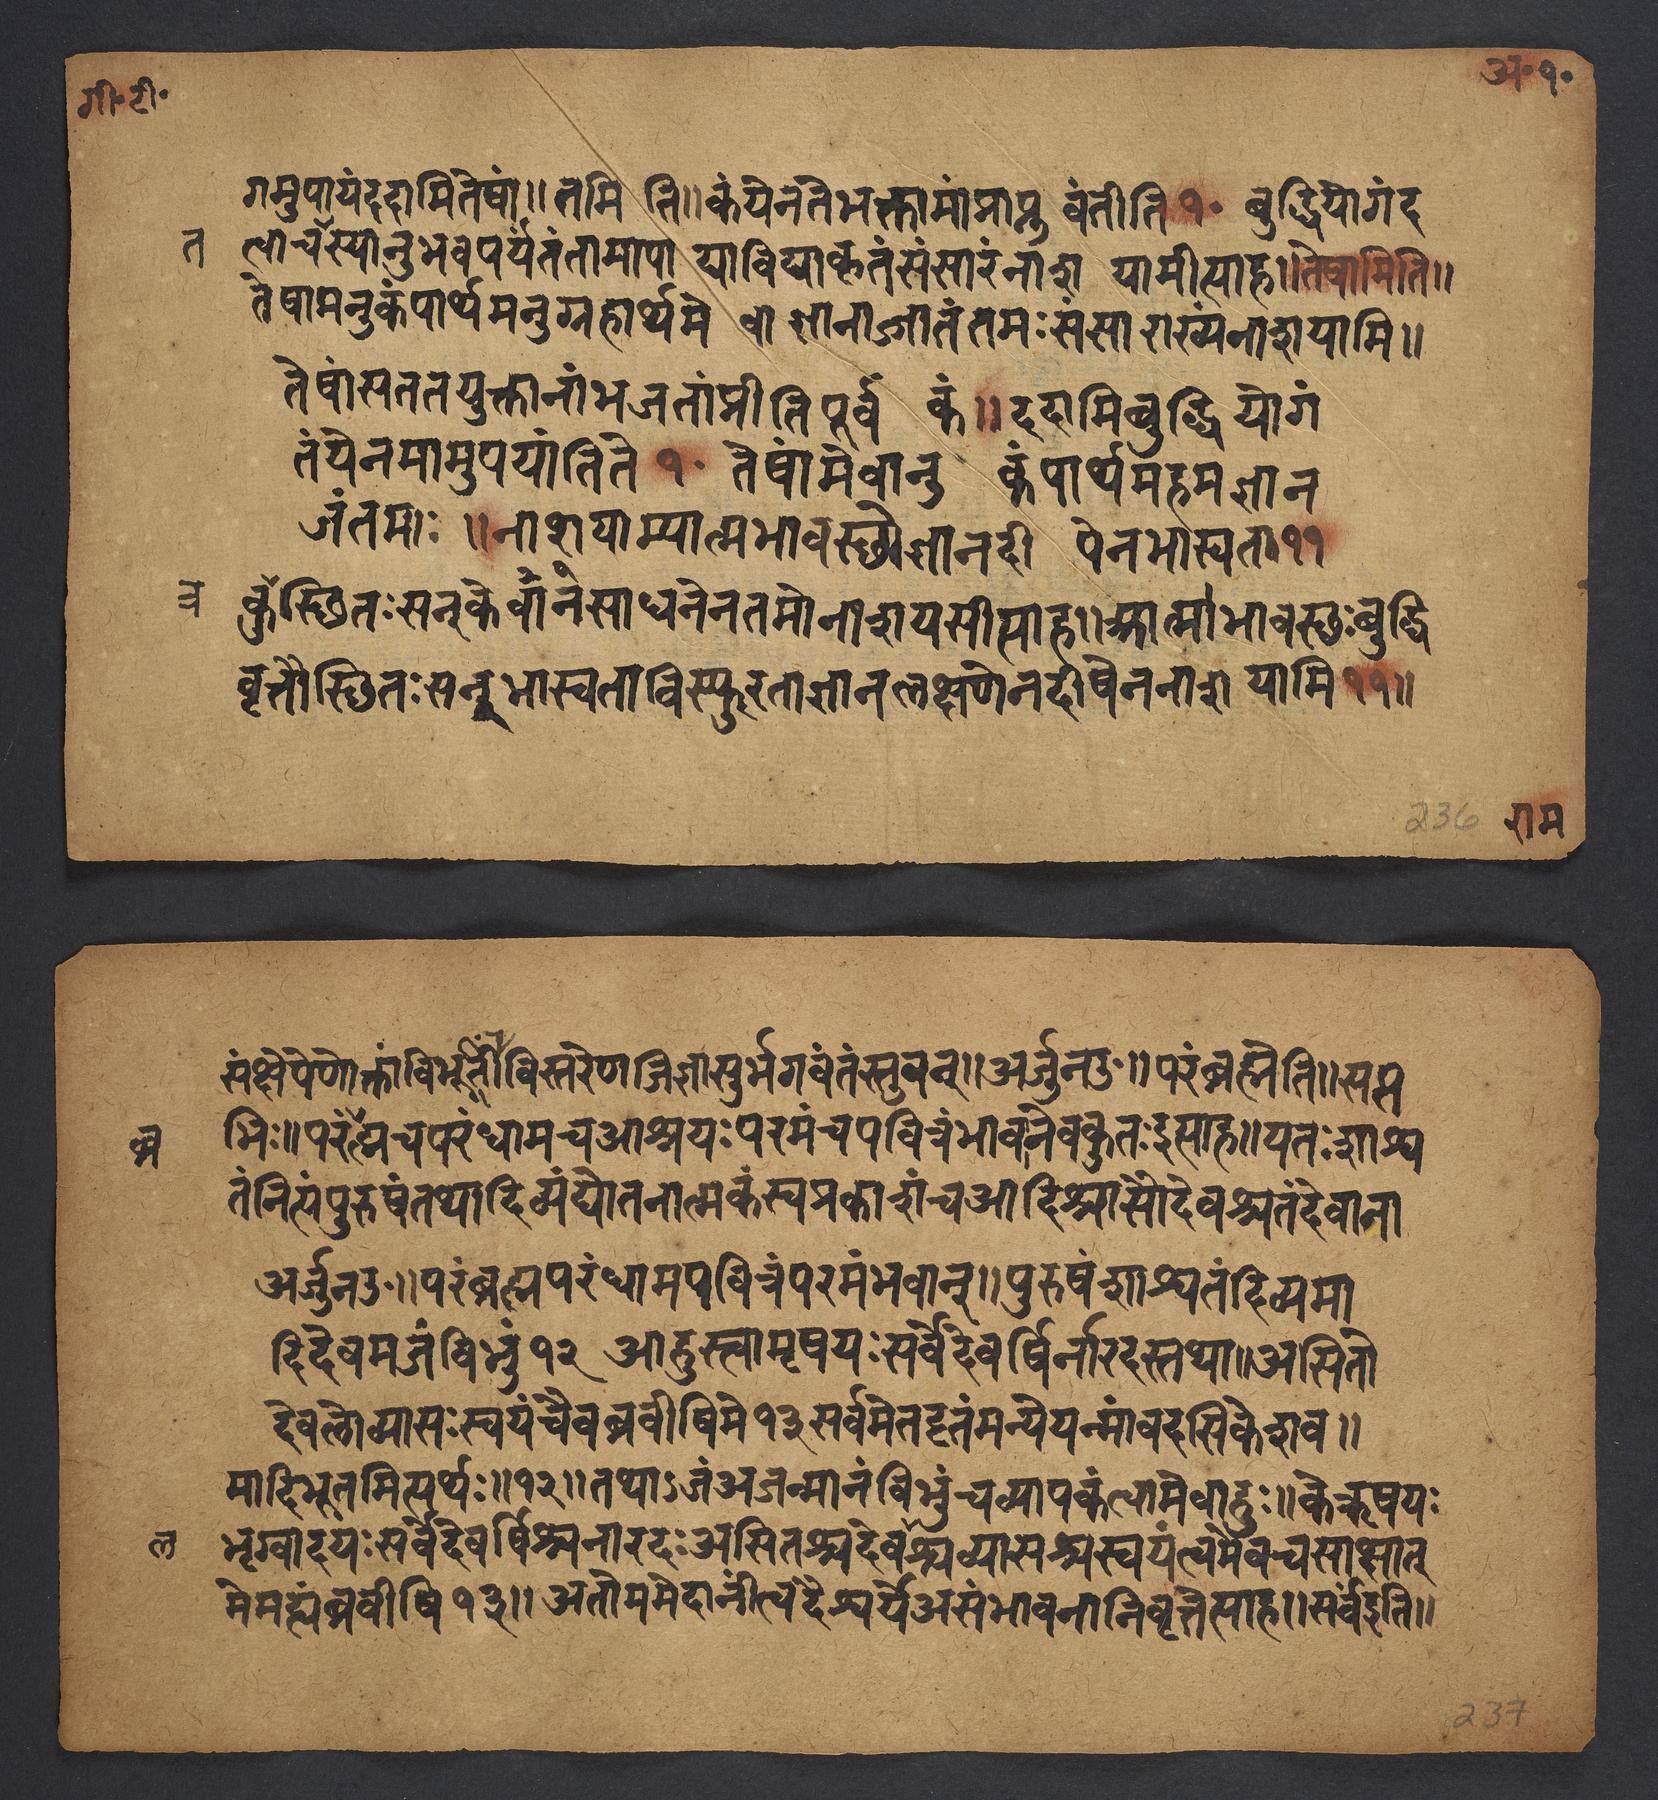 गी॰ टी॰
अ॰ १॰
गमुपायंददामितेषां॥ तमि ति॥ कंयेनतेभक्तामांप्राप्नु वंतीति १॰ बुद्धियोगंद
त
त्वाचस्यानुभवपर्यंतंतामापा द्याविद्याकृतंसंसारंनाश यामीत्याह॥तेषामिति॥
तेषामनुकंपार्थमनुग्रहार्थमे वाज्ञानाज्जातंतमःसंसा राख्यंनाशयामि॥
तेषांसततयुक्तानांभजतांप्रीतिपूर्व कं॥ ददामिबुद्धियोगं
तंयेनमामुपयांतिते १॰ तेषांमेवानु कंपार्थमहमज्ञान
जंतमः ॥नाशयाम्यात्मभावस्छोज्ञानदी पेनभास्वता११
व
कुस्छितःसन्केवानेसाधनेनतमोनाशयसीत्याह॥आत्माभावस्छःबुद्धि
वृत्तौस्छितःसन्भास्वताविस्फुरताज्ञानलक्षणेनदीपेननाश यामि ११॥
236
राम
संक्षेपेणोक्तांविभूतींविस्तरेणजिज्ञासुर्भगवंतंस्तुवन्॥अर्जुनउ॰॥परंब्रह्मेति॥सप्त
ब्र
भिः॥परंह्मचपरंधामचआश्रयःपरमंचपवित्रंभावनेवकुतःइत्याह॥यतःशाश्व
तंनित्यंपुरुषंतथादिव्यंद्योतनात्मकंस्वप्रकाशंचआदिश्चासौदेवश्चतंदेवाना
अर्जुनउ॰॥परंब्रह्मपरंधामपवित्रंपरमंभवान्॥पुरुषंशाश्वतंदिव्यमा
दिदेवमजंविभुं१२ आहुस्त्वामृषयःसर्वेदेवर्षिर्नारदस्तथा॥असितो
देवलोव्यासःस्वयंचैवब्रवीषिमे१३सर्वमेतदृतंमन्येयन्मांवदसिकेशव॥
मादिभूतमित्यर्थः॥१२॥तथाऽजंअजन्मानंविभुंचव्यापकंत्वामेवाहुः॥केऋषयः
ल
भृग्वादयःसर्वेदेवर्षिश्चनारदःअसितश्चदेवश्चव्यासश्चस्वयंत्वमेवचसाक्षात्
मेमह्यंब्रवीषि१३॥ अतोममेदानींत्वदैश्वर्येअसंभावनानिवृत्तेत्याह॥सर्वंइति॥
237